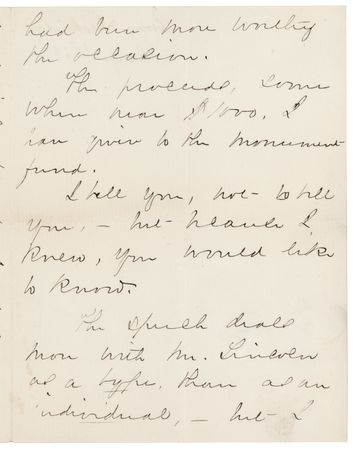 had been more worthy
the occasion.
The proceeds, some
where near $1000. I
have given to the monument
fund.
I tell you, not to tell
you, – but because I
knew, you would like
to know.
The speech deals
more with Mr. Lincoln
as a type, than as an
individual, – but I